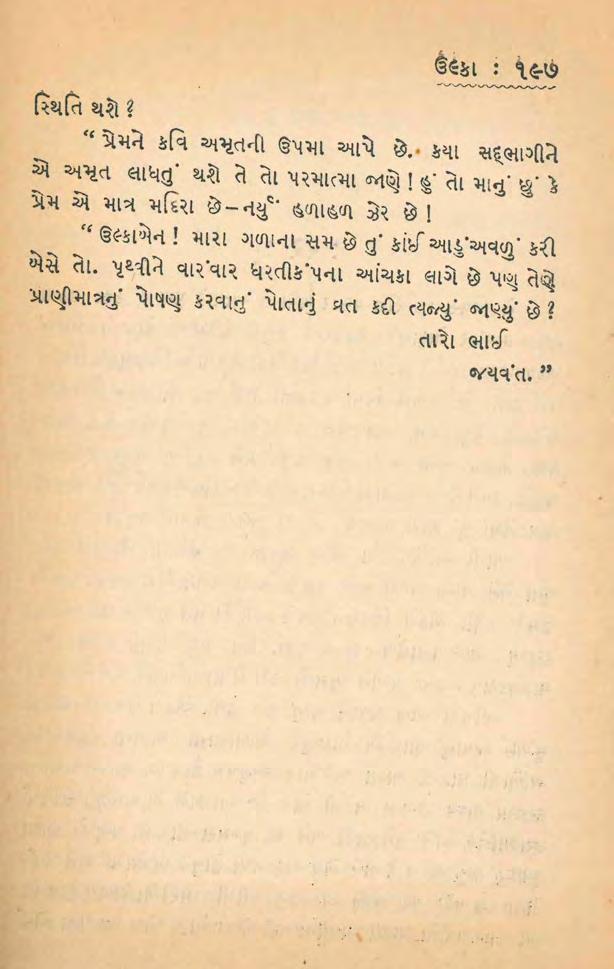 ઉલ્કા : ૧૯૭
સ્થિતિ થશે ?
“ પ્રેમને કવિ અમૃતની ઉપમા આપે છે. કયા સદ્દભાગીને
એ અમૃત લાધતું થશે તે તો પરમાત્મા જાણે ! હું તો માનું છું કે
પ્રેમ એ માત્ર મદિરા છે – નર્યું હળાહળ ઝેર છે !
“ ઉલ્કાબેન ! મારા ગળાના સમ છે તું કાંઈ આડુંઅવળું કરી
બેસે તો. પૃથ્વીને વારંવાર ધરતીકંપના આંચકા લાગે છે પણ તેણે
પ્રાણીમાત્રનું પોષણ કરવાનું પોતાનું વ્રત કદી ત્યજ્યું જાણ્યું છે ?
તારો ભાઈ
જયવંત. ”